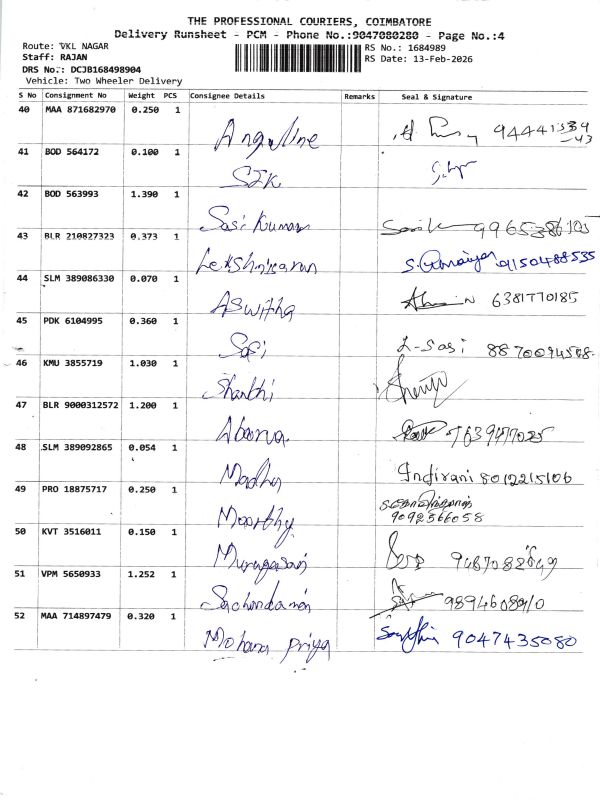 THE PROFESSIONAL COURIERS, COIMBATORE
Delivery Runsheet - PCM - Phone No.:9047080280 - Page No.:4
Route: VKL NAGAR
RS No.: 1684989
Staff: RAJAN
RS Date: 13-Feb-2026
DRS No.: DCJB168498904
Vehicle: Two Wheeler Delivery
S No Consignment No Weight PCS Consignee Details Remarks Seal & Signature
40 MAA 871682970 0.250 1 Angeline
41 BOD 564172 0.100 1 SIK
42 BOD 563993 1.390 1 Sasi Kumar
43 BLR 210827323 0.373 1 9150488535
44 SLM 389086330 0.070 1 Aswitha 6381770185
45 PDK 6104995 0.360 1 Sasi L-Sasi
46 KMU 3855719 1.030 1 Shanthi
47 BLR 9000312572 1.200 1
48 SLM 389092865 0.054 1 Madhu Indirani 8012215106
49 PRO 18875717 0.250 1 Moorthy 9092566058
50 KVT 3516011 0.150 1 Murugesan
51 VPM 5650933 1.252 1
52 MAA 714897479 0.320 1 Mohana Priya 9047435080